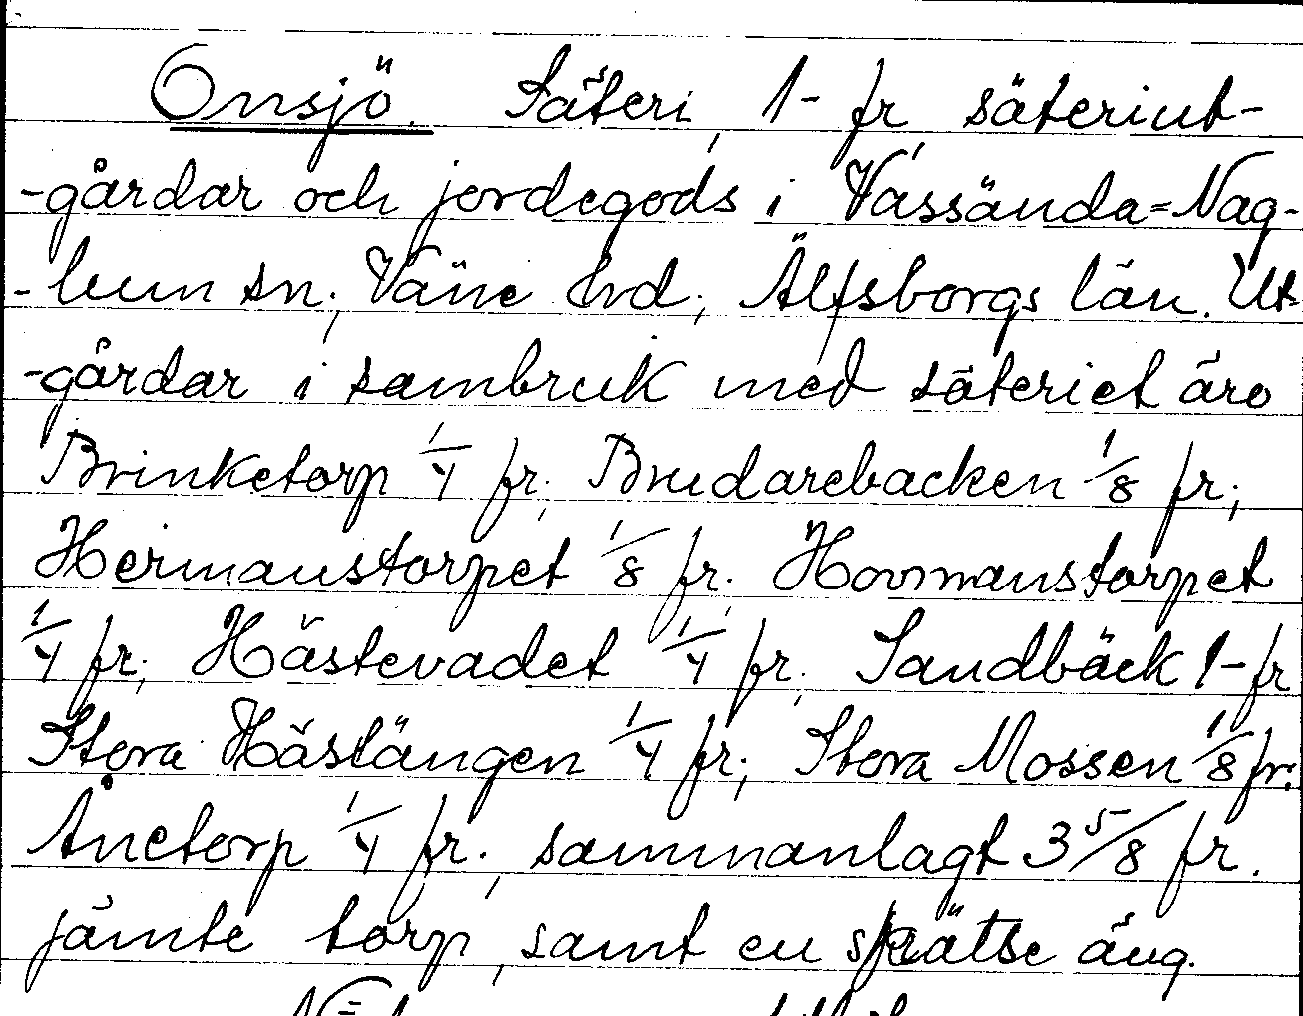 Onsjö. Säteri, 1- fr, säteriut-
-gårdar och jordegods i Vassända=Nag-
-lum sn; Väne hrd; Älfsborgs län. Ut-
-gårdar i sambruk med säteriet äro
Brinketorp 1/4 fr; Brudarebacken 1/8 fr;
Hermanstorpet 1/8 fr. Hovmanstorpet
1/4 fr; Hästevadet 1/4 fr; Sandbäck 1- fr
Stora Hästängen 1/4 fr; Stora Mossen 1/8 fr:
Ånetorp 1/4 fr.; sammanlagt 3 5/8 fr.
jämte torp, samt en äng.